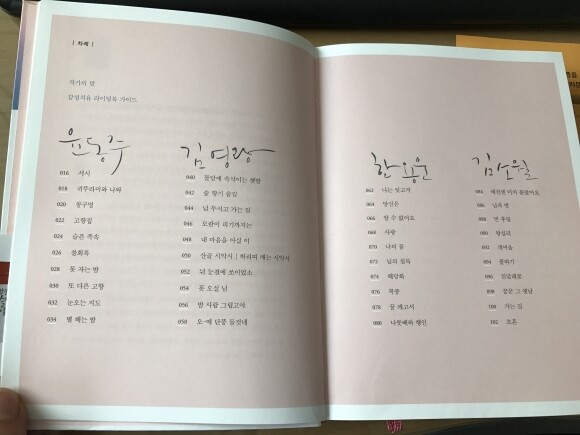 | 차례 |
작가의 말
감성치유 라이팅북 가이드
윤동주
016 서시
018 귀뚜라미와 나와
020 창구멍
022 고향집
024 슬픈 족속
026 참회록
028 못 자는 밤
030 또 다른 고향
032 눈오는 지도
034 별 헤는 밤
김영랑
040 돌담에 속삭이는 햇발
042 숲 향기 숨길
044 님 두시고 가는 길
046 모란이 피기까지는
048 내 마음을 아실 이
050 산골 시악시 | 허리띠 매는 시악시
052 뉘 눈결에 쏘이었소
054 못 오실 님
056 밤 사람 그립고야
058 오-매 단풍 들것네
한용운
062 나는 잊고저
064 당신은
066 알 수 없어요
068 사랑
070 나의 꿈
072 님의 침묵
074 해당화
076 복종
078 꿈 깨고서
080 나룻배와 행인
김소월
084 예전엔 미처 몰랐어요
086 님의 말
088 먼 후일
090 왕십리
092 개여울
094 봄비
096 진달래꽃
098 꿈꾼 그 옛날
100 가는 길
102 초혼